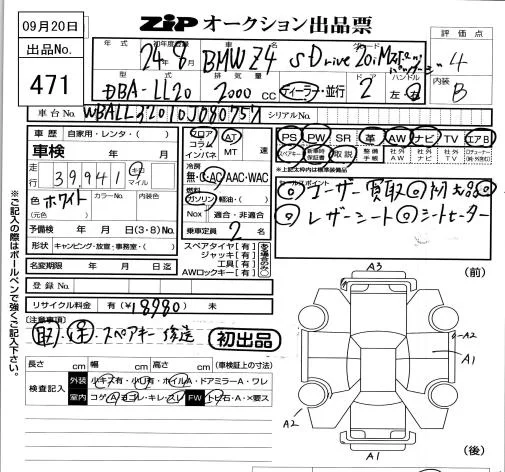 09月20日
ZIP オークション出品票
出品No. 471
年式 初年度登録 車名 グレード 評価点
24年 8月 BMW Z4 sDrive20i Mスポーツパッケージ 4
型式 排気量 ドア ハンドル 内装
DBA-LL20 2000 cc ディーラー・並行 2 左・右 B
車台No. WBALL32010J080757 シリアルNo.
車歴 自家用・レンタ・( )
フロア AT
コラム
インパネ MT 速
PS PW SR 革 AW ナビ TV エアB
スペアキー 新車時保証書 取説 整備手帳 社外AW 社外ナビ 社外TV
車検 年 月
走行 39,941 キロ マイル
冷房 無・C・AC・AAC・WAC
※上記太枠内は標準装備品
燃料 ガソリン・軽油・( )
◎ユーザー買取◎内外大品◎
◎レザーシート◎シートヒーター
色 ホワイト カラーNo. 内装色
(元色)
Nox 適合・非適合
予備検 年 月 日(3・8)No.
乗車定員 2 名
形状 キャンピング・放宣・事務室・( )
スペアタイヤ[有]
ジャッキ[有]
工具[有]
AWロックキー[有]
名変期限 年 月 日迄
登録No.
リサイクル料金 有(¥18980) 未
(注意事項)
取・保・スペアキー後送
初出品
長さ cm 幅 cm 高さ cm (車検証上の寸法)
検査記入 外装 小キズ有・小凹有・ホイルA・ドアミラーA・ワレ
室内 コゲA・ヨゴレ・キレ・スレ FW トビ石A・X要ス
A3 (前)
A2
A1
A2
A1 (後)
※ご記入の際はボールペンで強くご記入下さい。